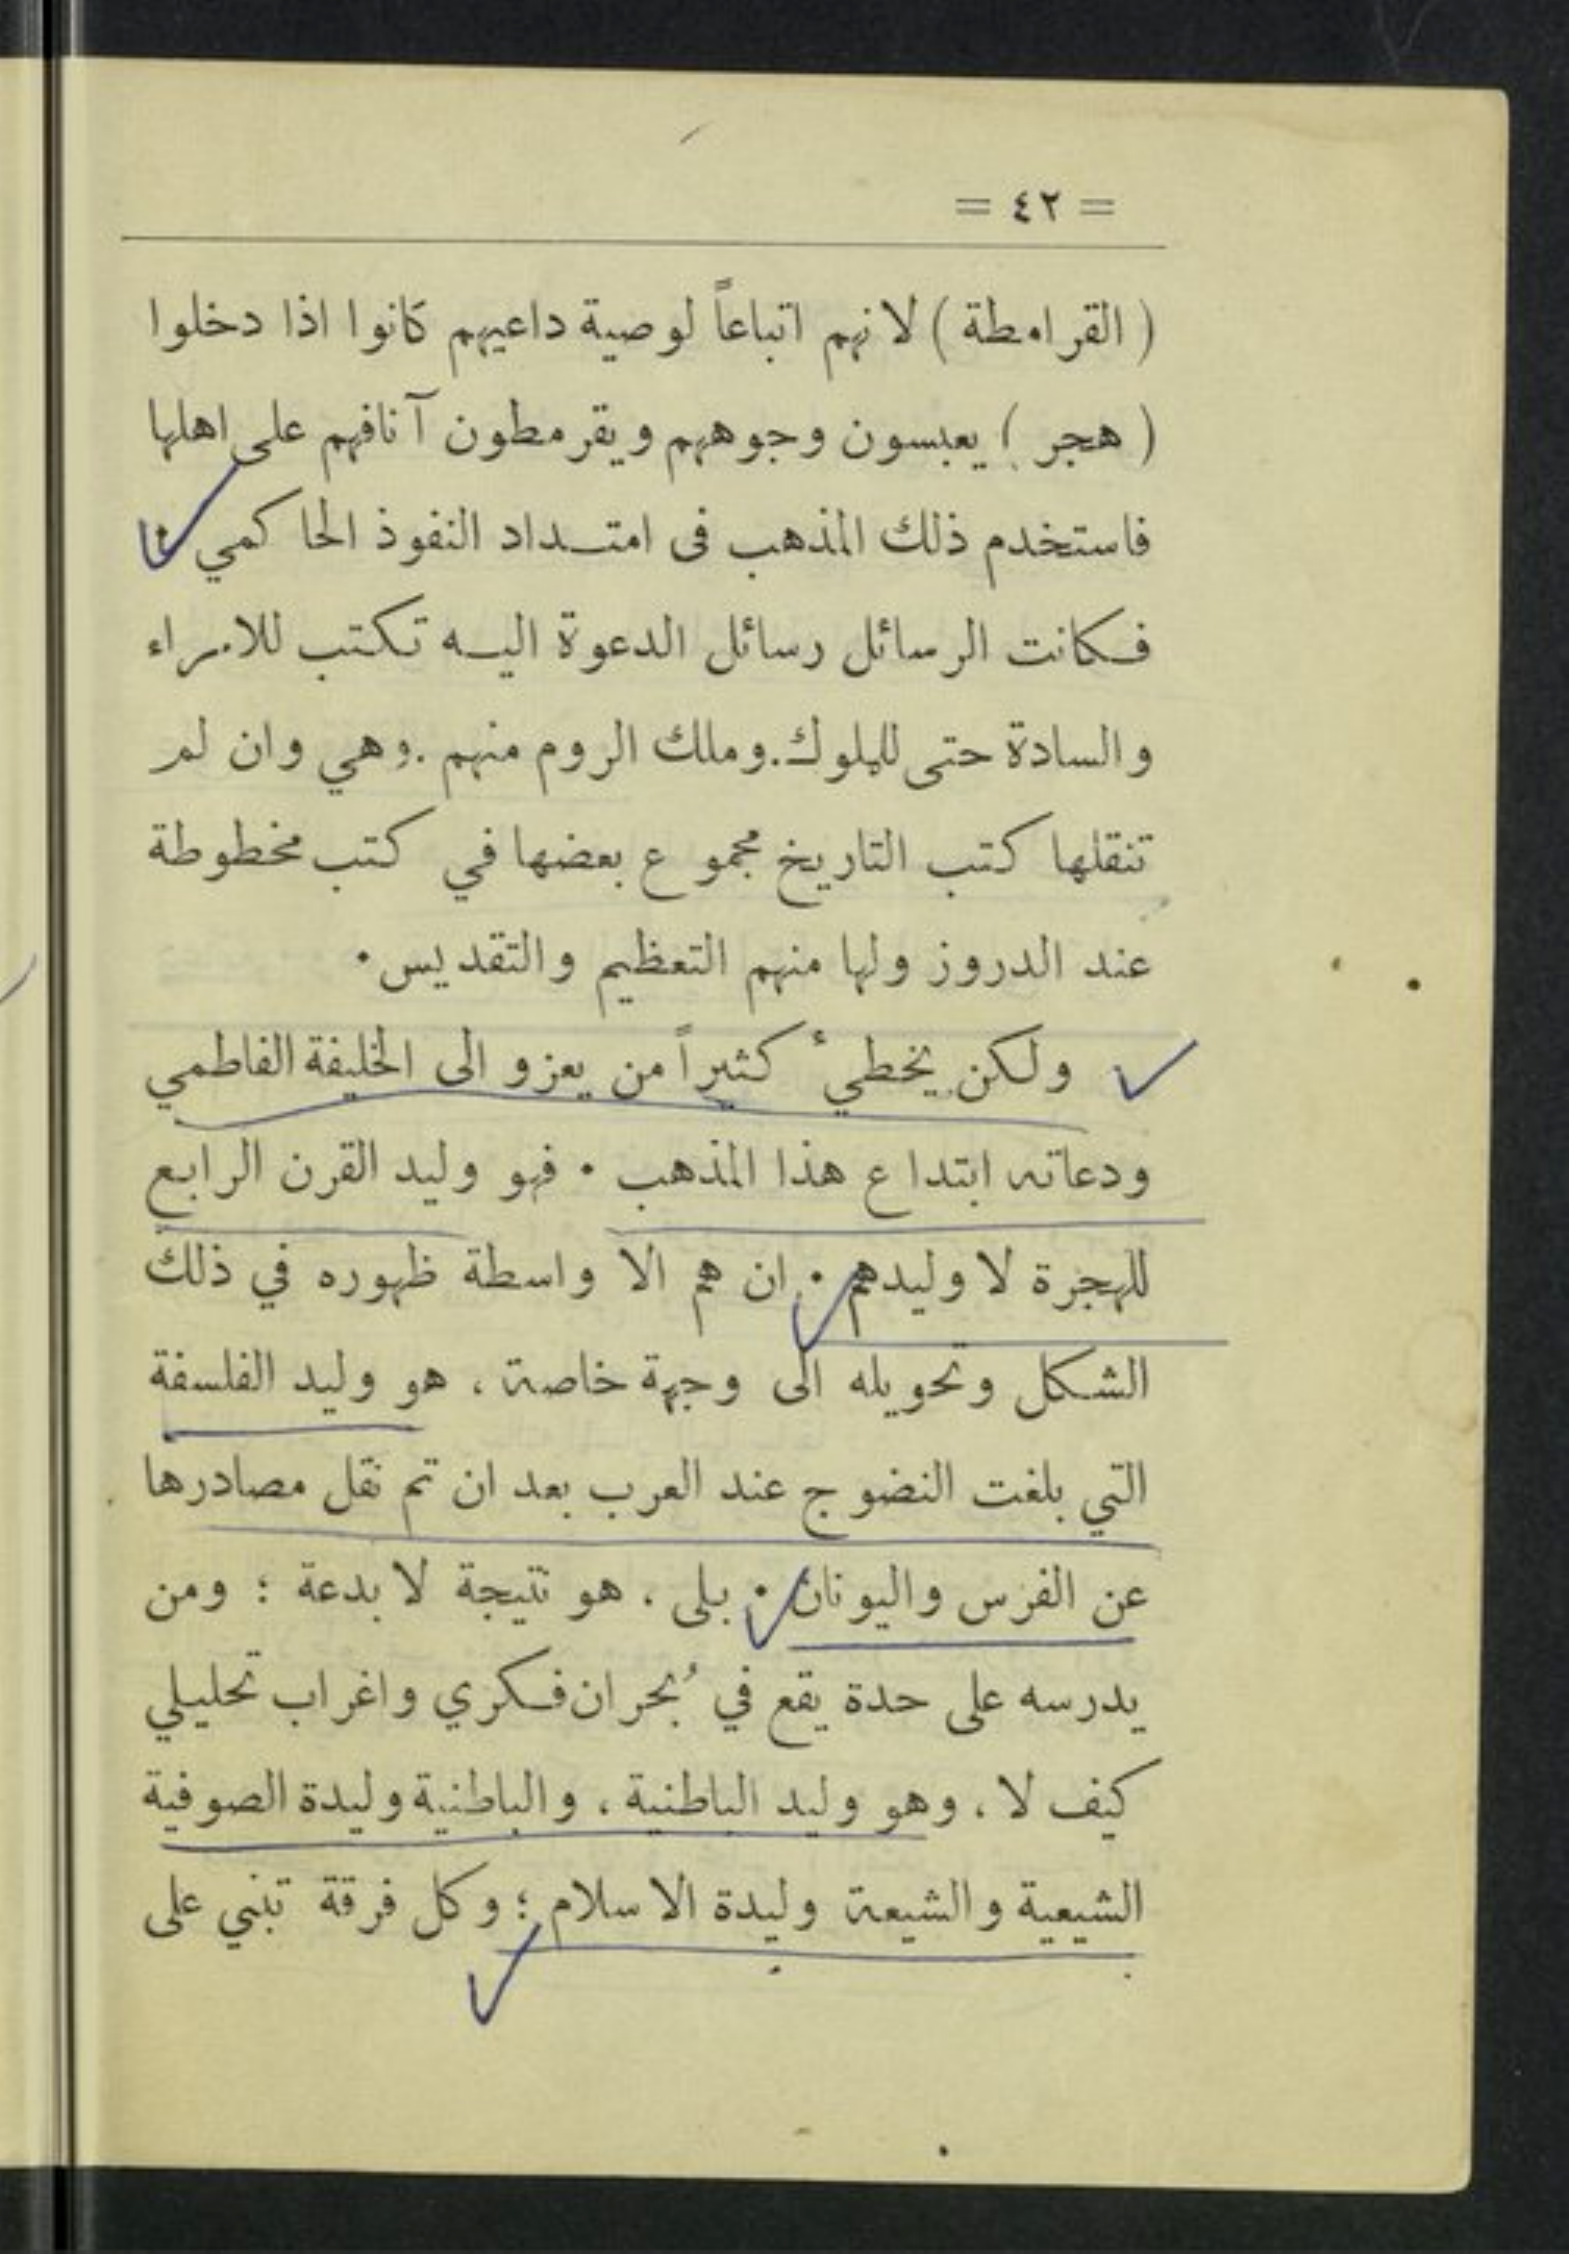 = ٤٢ =
( القرامطة ) لانهم اتباعاً لوصية داعيهم كانوا اذا دخلوا
( هجر ) يعبسون وجوههم ويقرمطون آنافهم على اهلها
فاستخدم ذلك المذهب في امتداد النفوذ الحاكمي .
فكانت الرسائل رسائل الدعوة اليه تكتب للامراء
والسادة حتى للملوك . وملك الروم منهم . وهي وان لم
تنقلها كتب التاريخ مجموع بعضها في كتب مخطوطة
عند الدروز ولها منهم التعظيم والتقديس .
ولكن يخطيء كثيراً من يعزو الى الخليفة الفاطمي
ودعاته ابتداع هذا المذهب . فهو وليد القرن الرابع
للهجرة لا وليدهم . ان هم الا واسطة ظهوره في ذلك
الشكل وتحويله الى وجهة خاصة ، هو وليد الفلسفة
التي بلغت النضوج عند العرب بعد ان تم نقل مصادرها
عن الفرس واليونان . بلى ، هو نتيجة لا بدعة ؛ ومن
يدرسه على حدة يقع في بُحران فكري واغراب تحليلي
كيف لا ، وهو وليد الباطنية ، والباطنية وليدة الصوفية
الشيعية والشيعة وليدة الاسلام ؛ وكل فرقة تبني على